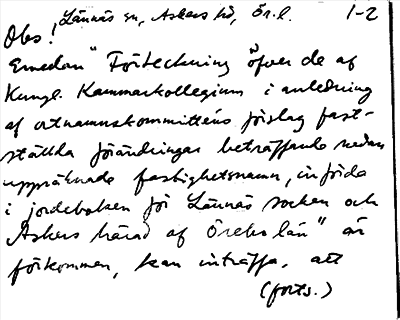 Lännäs sn, Askers hd, Ör.l. 1-2
Obs!
Emedan "Förteckning öfver de af
Kungl. Kammarkollegium i anledning
af ortnamnskommitténs förslag fast-
ställda förändringar beträffande nedan
uppräknade fastighetsnamn, införda
i jordeboken för Lännäs socken och
Askers härad af Örebro län" är
förkommen, kan inträffa, att
(forts.)